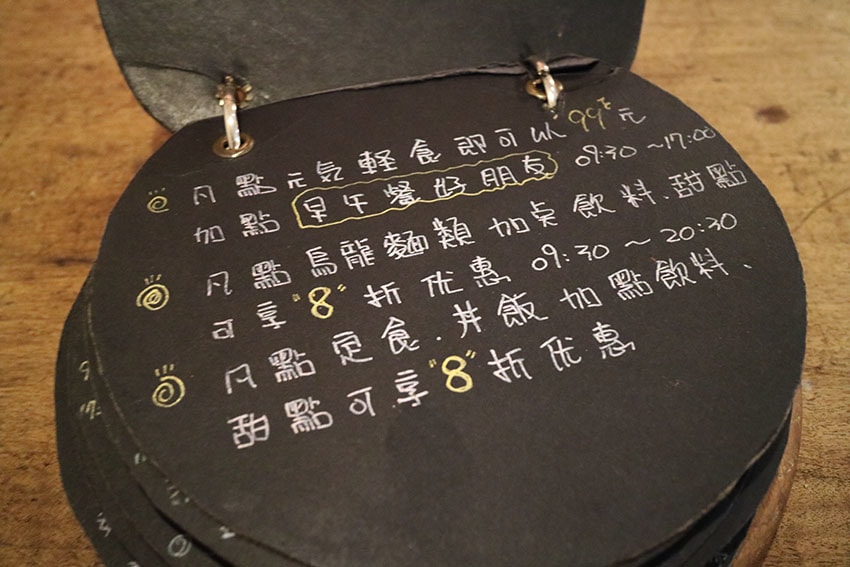 凡點元気軽食即可以99元
加點早午餐好朋友 09:30～17:00
凡點烏龍麵類加桌飲料、甜點
可享"8"折优惠 09:30～20:30
凡點定食、丼飯加點飲料、
甜點可享"8"折优惠